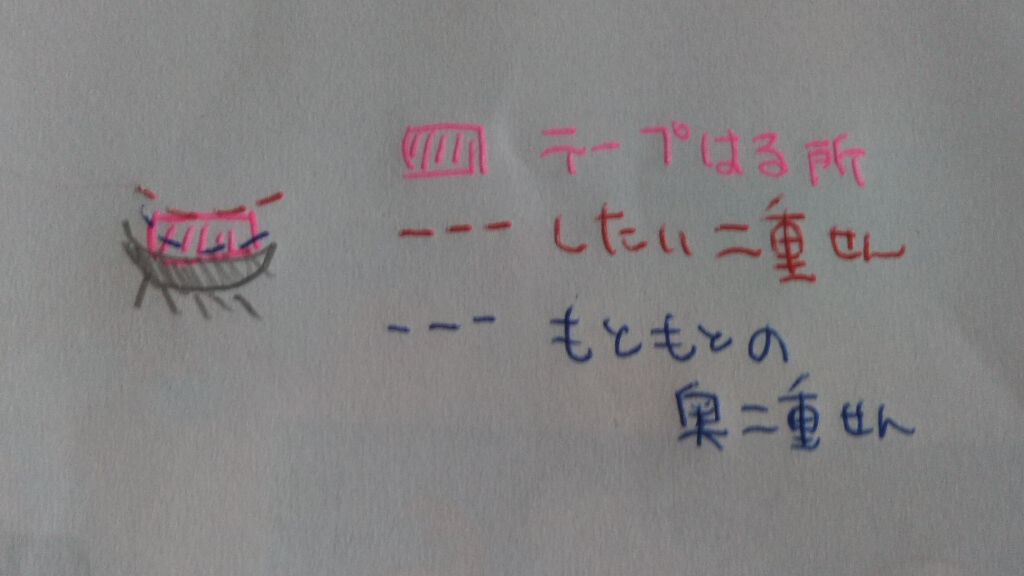 テープはる所
したい二重せん
もともとの
奥二重せん